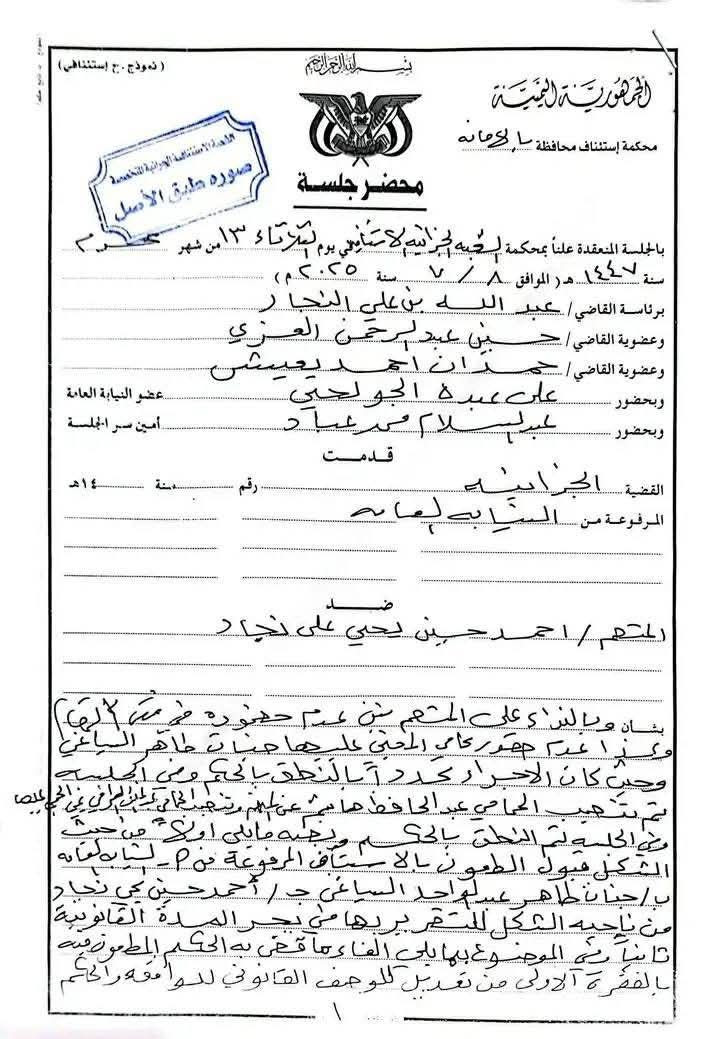 (نموذج.ج إستئنافي)
بسم الله الرحمن الرحيم
الجمهورية اليمنية
محكمة إستئناف محافظة بالامانه
صوره طبق الأصل
محضر جلسة
بالجلسة المنعقدة علناً بمحكمة الشعبه الجزائيه الاستئنافيه في يوم الثلاثاء ١٣ من شهر محرم
سنة ١٤٤٧ هـ ( الموافق ٨ / ٧ سنة ٢٠٢٥ م )
برئاسة القاضي/ عبدالله بن علي النجار
وعضوية القاضي/ حسين عبدالرحمن العزي
وعضوية القاضي/ حمدان احمد يعيش
وبحضور علي عبده الحولحي عضو النيابة العامة
وبحضور عبدالسلام محمد عباد أمين سر الجلسة
قدمت
القضية الجزائيه رقم سنة ١٤هـ
المرفوعة من النيابه العامه
ضد
المتهم / احمد حسين يحيى علي نجاد
بشان وبالنداء على المتهم تبين عدم حضوره
وكذا عدم حضور محامي المجني عليها حنان طاهر الساعي
وحيث كان الاجراء محدداً بالنطق بالحكم وفي الجلسه
تم تنصيب المحامي عبدالحافظ هاشم عن المتهم وتنصيب المحامي
وفي الجلسه تم النطق بالحكم ويجنه مايلي اولاً من حيث
الشكل قبول الطعون بالاستئناف المرفوعة من النيابه العامه
ب/حنان طاهر عبدالواحد الساعي ج/ أحمد حسين يحي نجاد
من ناحيه الشكل للتقرير بها من بحر المدة القانونية
ثانياً وفي الموضوع بمايلي الغاء ماقضى به الحكم المطعون فيه
بالفقرة الاولى من تعديل للوصف القانوني للواقعه والحكم
١